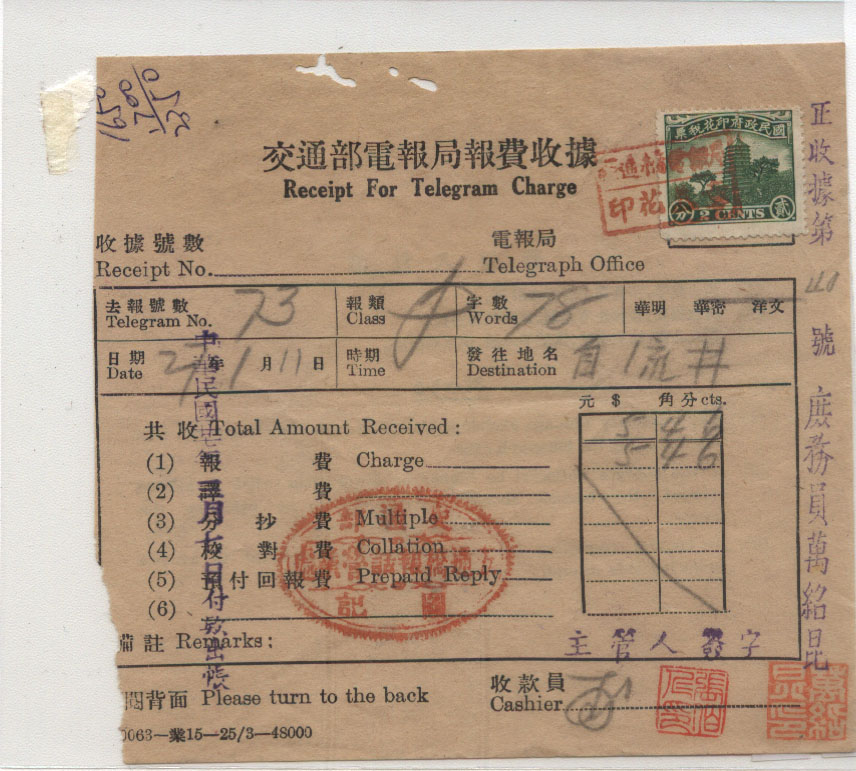 1650
700
2350
國民政府印花稅票
2 CENTS
貳
分
印花
交通部電報局報費收據
Receipt For Telegram Charge
收據號數
Receipt No.
電報局
Telegraph Office
去報號數 73 報類 字數 78 華明 華密 洋文
Telegram No. Class Words
日期 27年1月11日 時期 發往地名 自流井
Date Time Destination
元 $ 角分 cts.
共收 Total Amount Received: 5 46
(1) 報費 Charge 5 46
(2) 譯費
(3) 分抄費 Multiple
(4) 校對費 Collation
(5) 預付回報費 Prepaid Reply
(6)
備註 Remarks:
主管人簽字
閱背面 Please turn to the back
收款員
Cashier
0063—業15—25/3—48000
正收據第 40 號 庶務員萬紹昆
中華民國廿七年 月七日付款出帳